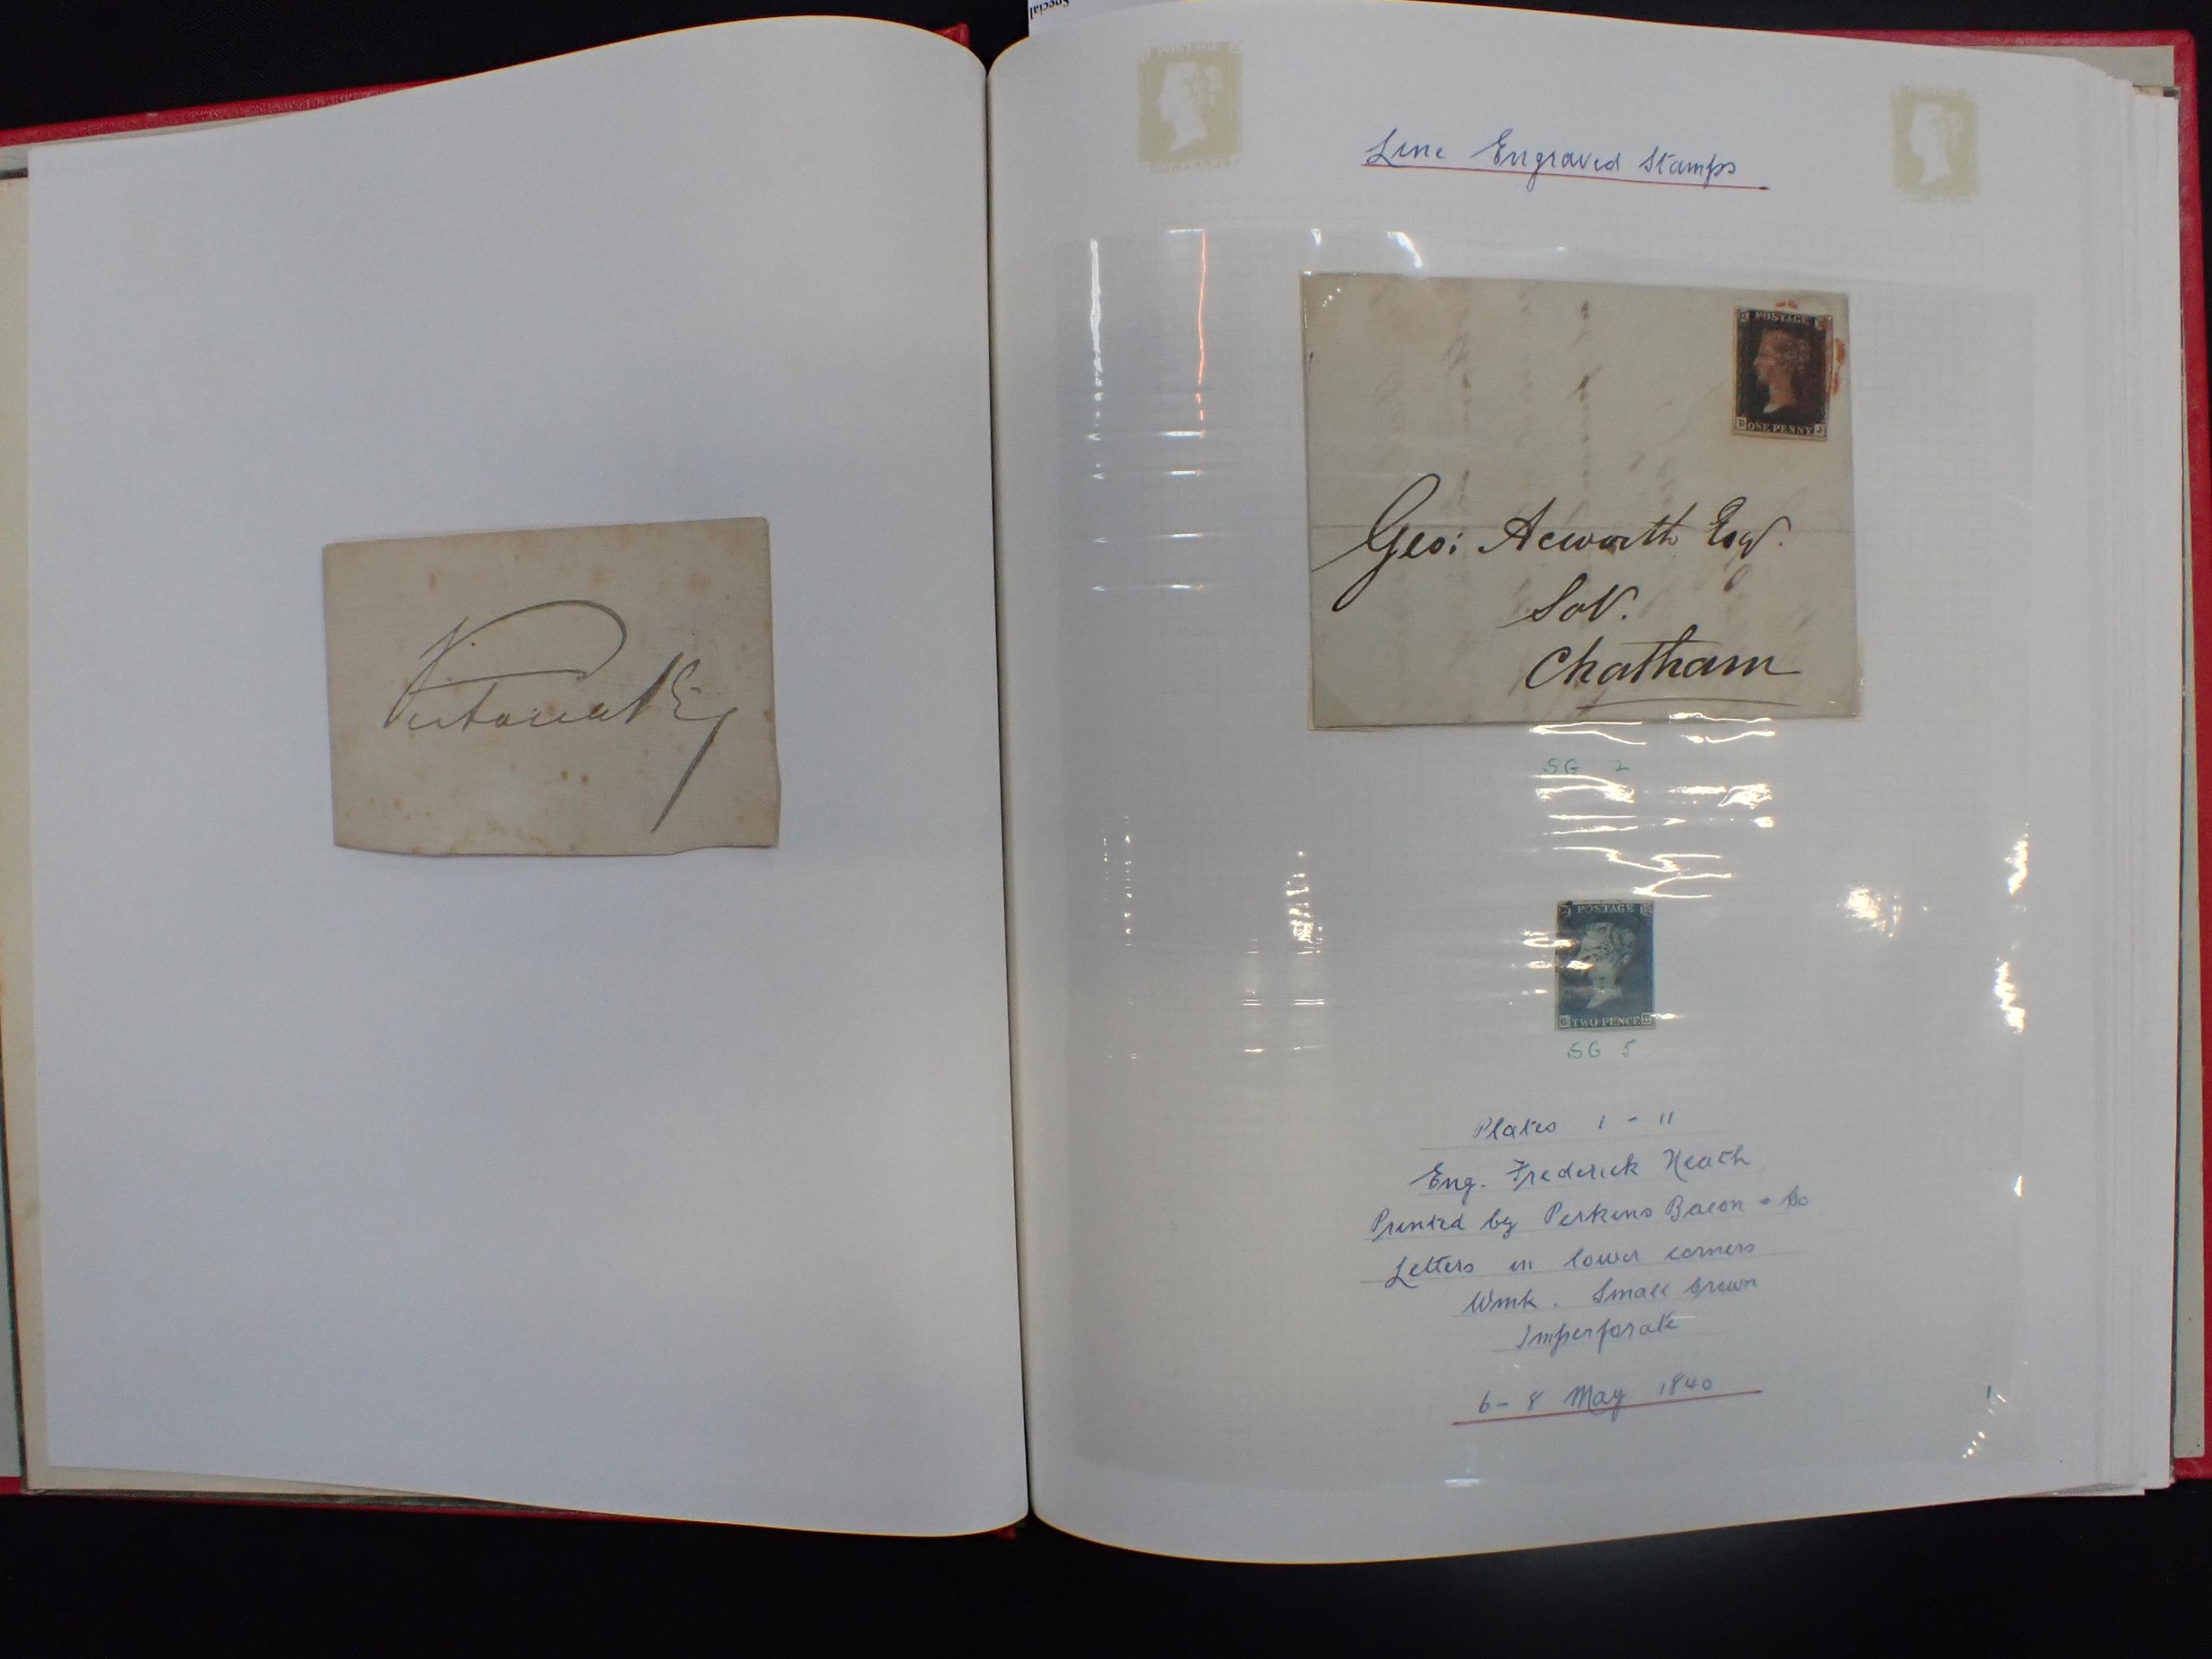 Special
Victoria R
Line Engraved Stamps
POSTAGE
D ONE PENNY J
Geo: Acworth Esqr.
Solr.
Chatham
SG 2
POSTAGE
G TWO PENCE
SG 5
Plates 1 - 11
Eng. Frederick Heath
Printed by Perkins Bacon & Co
Letters in lower corners
Wmk. Small Crown
Imperforate
6 - 8 May 1840